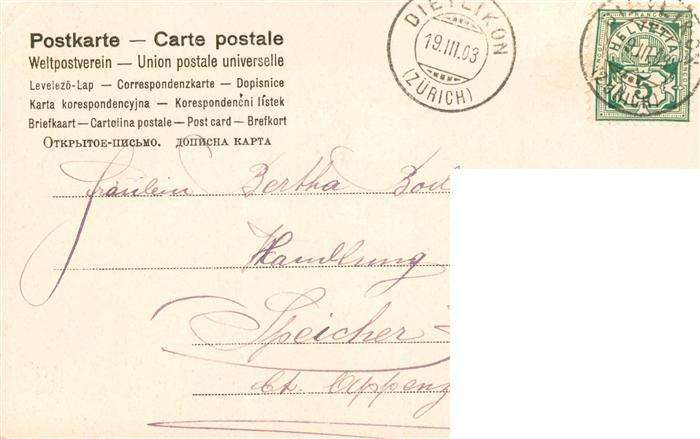 Postkarte — Carte postale
Weltpostverein — Union postale universelle
Levelező-Lap — Correspondenzkarte — Dopisnice
Karta korespondencyjna — Korespondenční lístek
Briefkaart — Cartolina postale — Post card — Brefkort
Открытое-письмо. дописна карта
DIETLIKON
19.III.03
(ZÜRICH)
FRANCO
HELVETIA
5
(ZÜRICH)
Fräulein Bertha Bod
Handlung
Speicher
Ct. Appenz